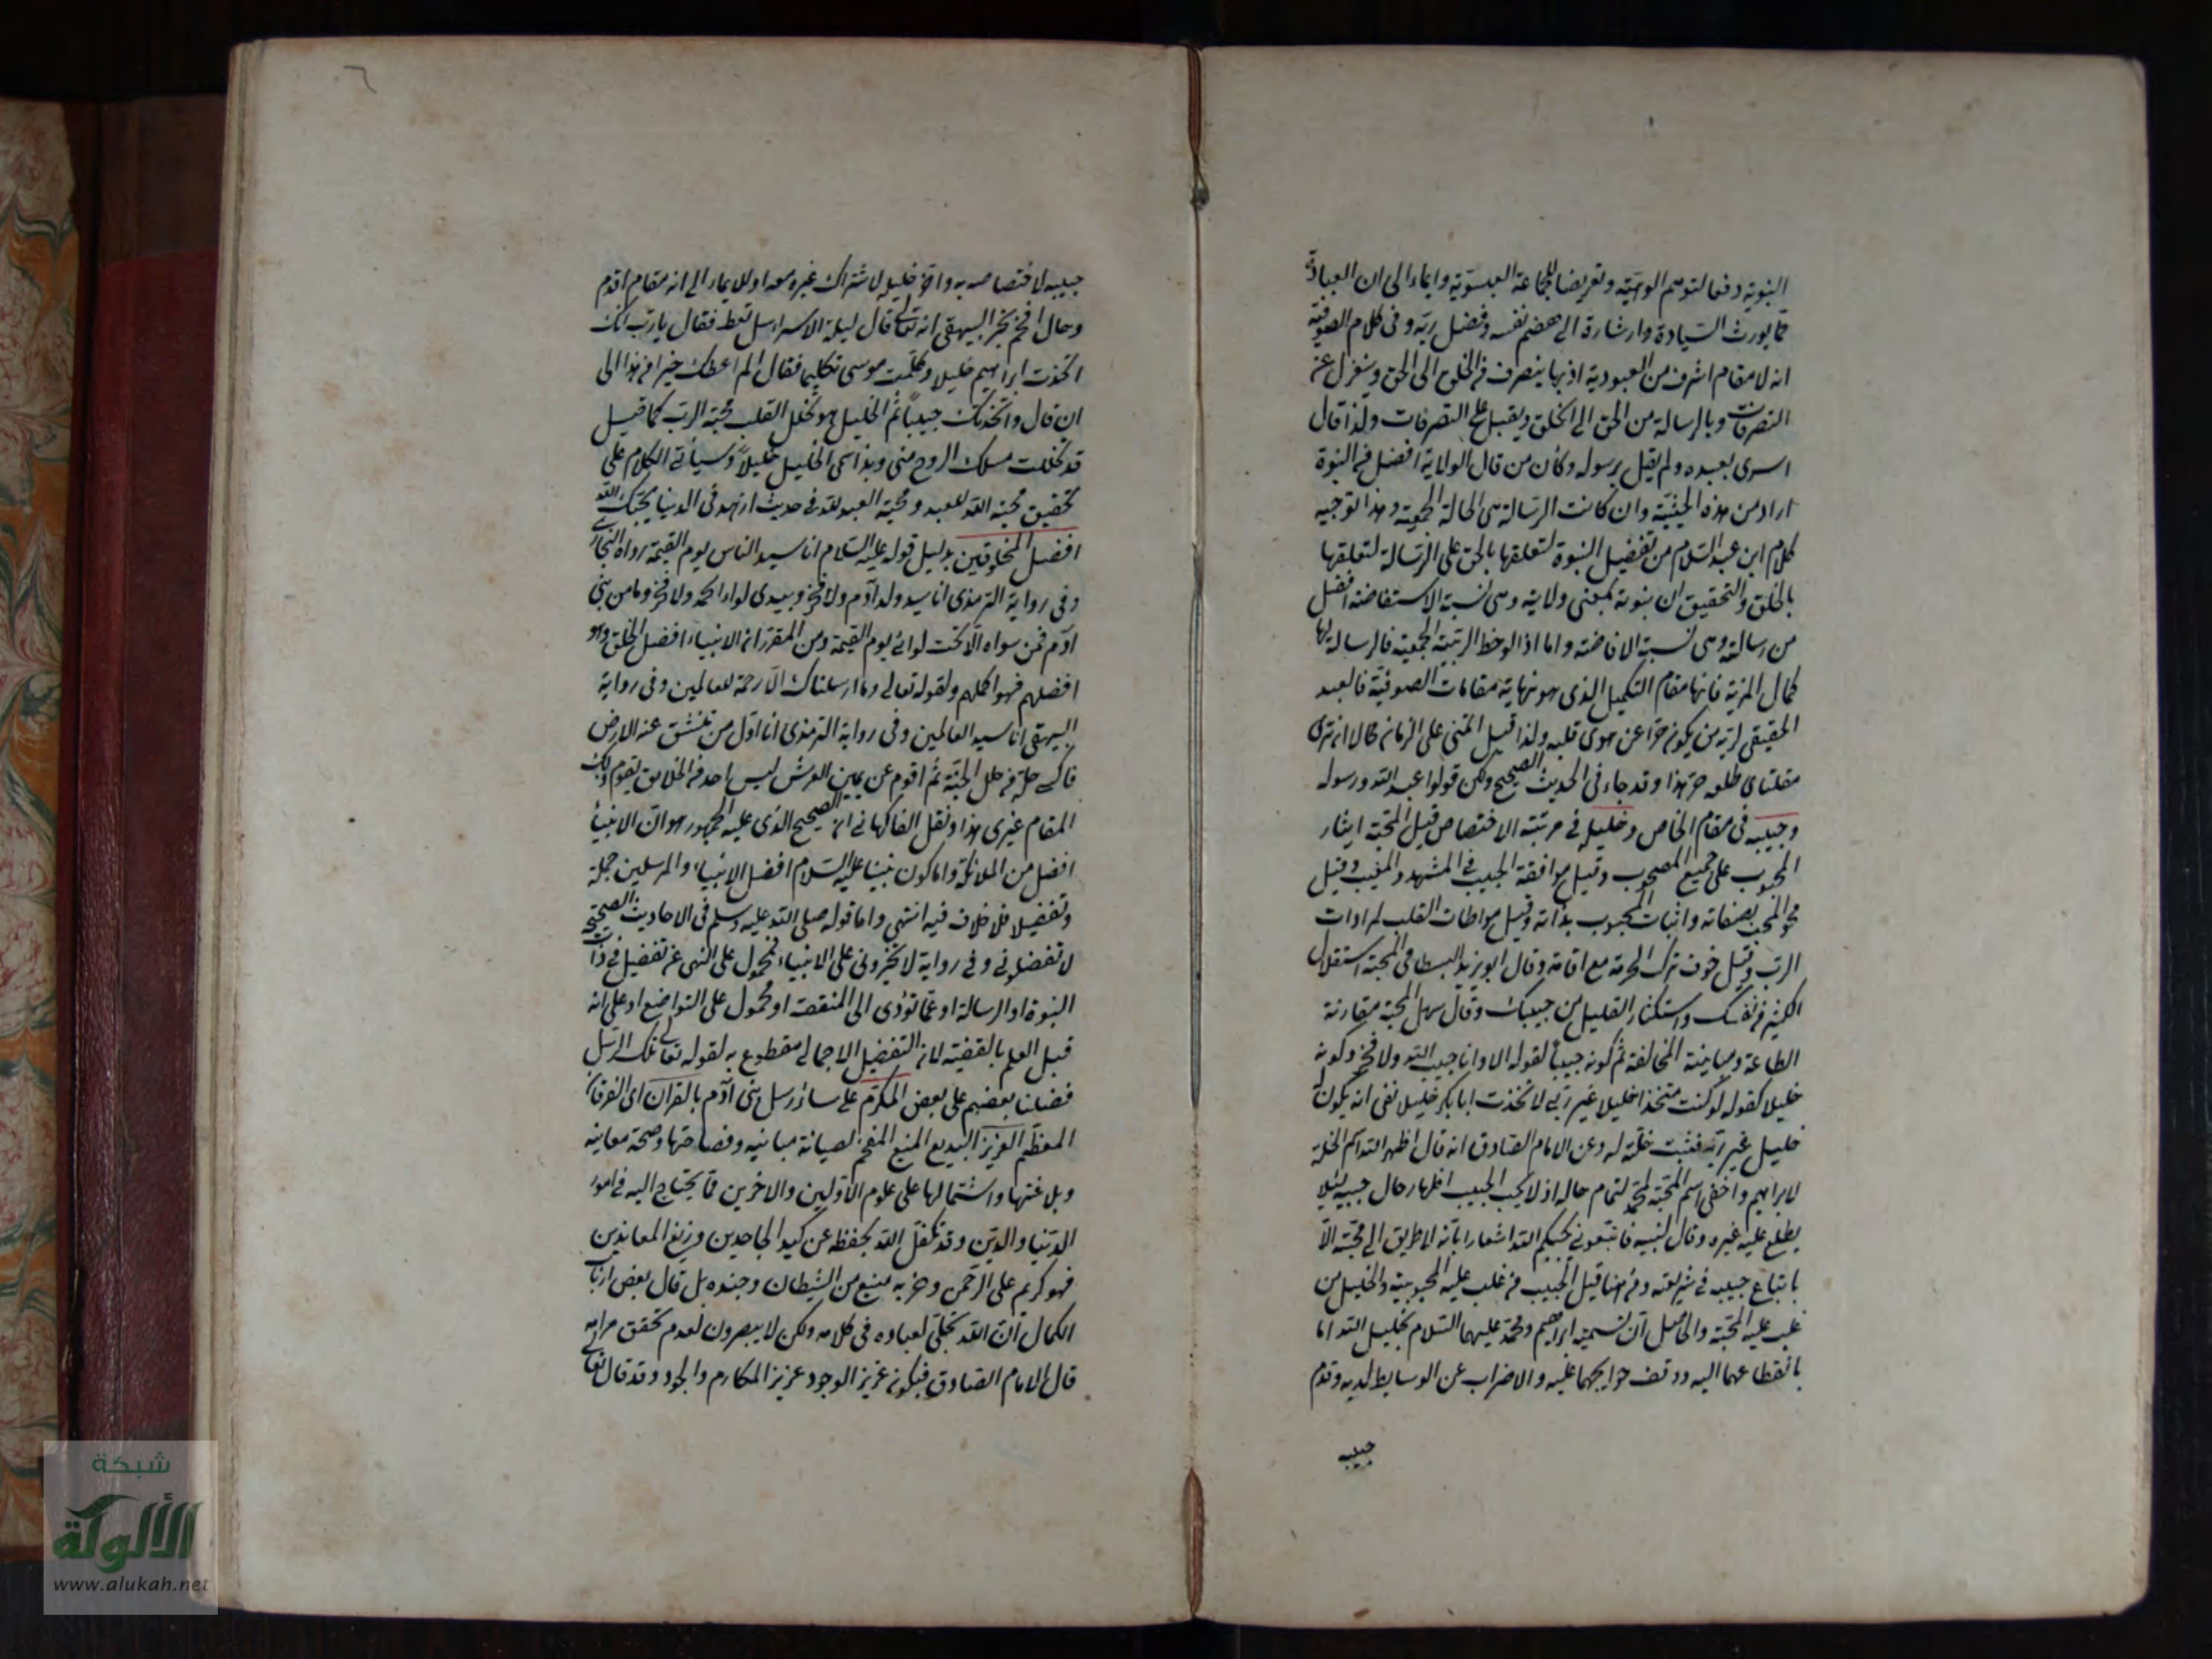 النبوية دفعا لتوهم الوهيته وتعريضا للجماعة العيسوية وايماء الى ان العبادة
مما يورث السيادة وارشارة الى هضم نفسه وفضل ربه وفى كلام الصوفية
انه لا مقام اشرف من العبودية اذ بها ينصرف من الخلق الى الحق وينعزل عن
التصرفات وبالرسالة من الحق الى الخلق ويقبل على التصرفات ولذا قال
اسرى بعبده ولم يقل برسوله وكأن من قال الولاية افضل من النبوة
اراد من هذه الحيثية وان كانت الرسالة هى الحالة الجمعية وهذا توجيه
كلام ابن عبد السلام من تفضيل النبوة لتعلقها بالحق على الرسالة لتعلقها
بالخلق والتحقيق ان نبوته بمعنى ولايته وهى نسبة الاستفاضة افضل
من رسالته وهى نسبة الافاضة واما اذا لوحظ الرتبة الجمعية فالرسالة لها
كمال المزية فانها مقام التكميل الذى هو نهاية مقامات الصوفية فالعبد
الحقيقى لربه من يكون حرا عن هوى قلبه ولذا قيل اتمنى على الزمان محالا ان ترى
مقلتاى طلعة حر هذا وقد جاء فى الحديث الصحيح ولكن قولوا عبد الله ورسوله
وحبيبه فى مقام الخاص وخليله فى مرتبة الاختصاص قيل المحبة ايثار
المحبوب على جميع المصحوب وقيل موافقة الحبيب فى المشهد والمغيب وقيل
محو المحب بصفاته واثبات المحبوب بذاته وقيل مواطات القلب لمرادات
الرب وقيل خوف ترك الحرمة مع اقامة وقال ابو يزيد البسطامى المحبة استقلال
الكثير من نفسك واستكثار القليل من حبيبك وقال سهل المحبة مقارنة
الطاعة ومباينة المخالفة ثم كونه حبيبا لقوله الا وانا حبيب الله ولا فخر وكونه
خليلا كقوله لو كنت متخذا خليلا غير ربى لاتخذت ابا بكر خليلا نفى ان يكون له
خليل غير ربه فثبت خلته له وعن الامام الصادق انه قال اظهر الله اسم الخلة
لابراهيم واخفى اسم المحبة لمحمد لتمام حاله اذ لا يحب الحبيب اظهار حال حبيبه لئلا
يطلع عليه غيره وقال لنبيه فاتبعونى يحببكم الله اشعارا بانه لا طريق الى محبته الا
باتباع حبيبه فى شريعته ومن هنا قيل الحبيب من غلب عليه المحبوبية والخليل من
غلب عليه المحبة والحاصل ان تسمية ابراهيم ومحمد عليهما السلام بخليل الله اما
بانقطاعهما اليه ووقف حوايجهما عليه والاضراب عن الوسايط لديه وقدم
حبيبه
حبيبه لاختصاصه به واخر خليله لاشتراك غيره معه او للايماء الى انه مقام اقدم
وحال افخم بخبر البيهقى انه تعالى قال ليلة الاسراء سل تعط فقال يا رب انك
اتخذت ابراهيم خليلا وكلمت موسى تكليما فقال الم اعطك خيرا من هذا الى
ان قال واتخذتك حبيبا ثم الخليل هو تخلل القلب محبة الرب كما قيل
قد تخللت مسلك الروح منى وبذا سمى الخليل خليلا وسيأتى الكلام على
تحقيق محبة الله للعبد ومحبة العبد لله فى حديث ازهد فى الدنيا يحبك الله
افضل المخلوقين بدليل قوله عليه السلام انا سيد الناس يوم القيمة رواه البخارى
وفى رواية الترمذى انا سيد ولد آدم ولا فخر وبيدى لواء الحمد ولا فخر وما من نبى
آدم فمن سواه الا تحت لوائى يوم القيمة ومن المقرر ان الانبياء افضل الخلق وهو
افضلهم فهو اكملهم ولقوله تعالى وما ارسلناك الا رحمة للعالمين وفى رواية
البيهقى انا سيد العالمين وفى رواية الترمذى انا اول من تنشق عنه الارض
فاكسى حلة من حلل الجنة ثم اقوم عن يمين العرش ليس احد من الخلايق يقوم ذلك
المقام غيرى هذا ونقل الفاكهانى ان الصحيح الذى عليه الجمهور هو ان الانبياء
افضل من الملائكة واما كون نبينا عليه السلام افضل الانبياء والمرسلين جملة
وتفضيلا فلا خلاف فيه انتهى واما قوله صلى الله عليه وسلم فى الاحاديث الصحيحة
لا تفضلونى وفى رواية لا تخيرونى على الانبياء فمحمول على النهى عن تفضيل فى ذات
النبوة او الرسالة او عما تؤدى الى المنقصة او محمول على التواضع او على انه
قبل العلم بالقضية لان التفضيل الاجمالى مقطوع به لقوله تعالى تلك الرسل
فضلنا بعضهم على بعض المكرم على سائر رسل بنى آدم بالقرآن اى الفرقان
المعظم العزيز البديع المنيع المفخم لصيانة مبانيه وفصاحتها وصحة معانيه
وبلاغتها واشتمالها على علوم الاولين والاخرين مما يحتاج اليه فى امور
الدنيا والدين وقد تكفل الله بحفظه عن كيد الجاحدين وزيغ المعاندين
فهو كريم على الرحمن وحزبه منيع من الشيطان وجنده بل قال بعض ارباب
الكمال ان الله تجلى لعباده فى كلامه ولكن لا يبصرون لعدم تحقق مرامه
قال الامام الصادق فيكون عزيز الوجود عزيز المكارم والجود وقد قال تعالى
شبكة
الألوكة
www.alukah.net